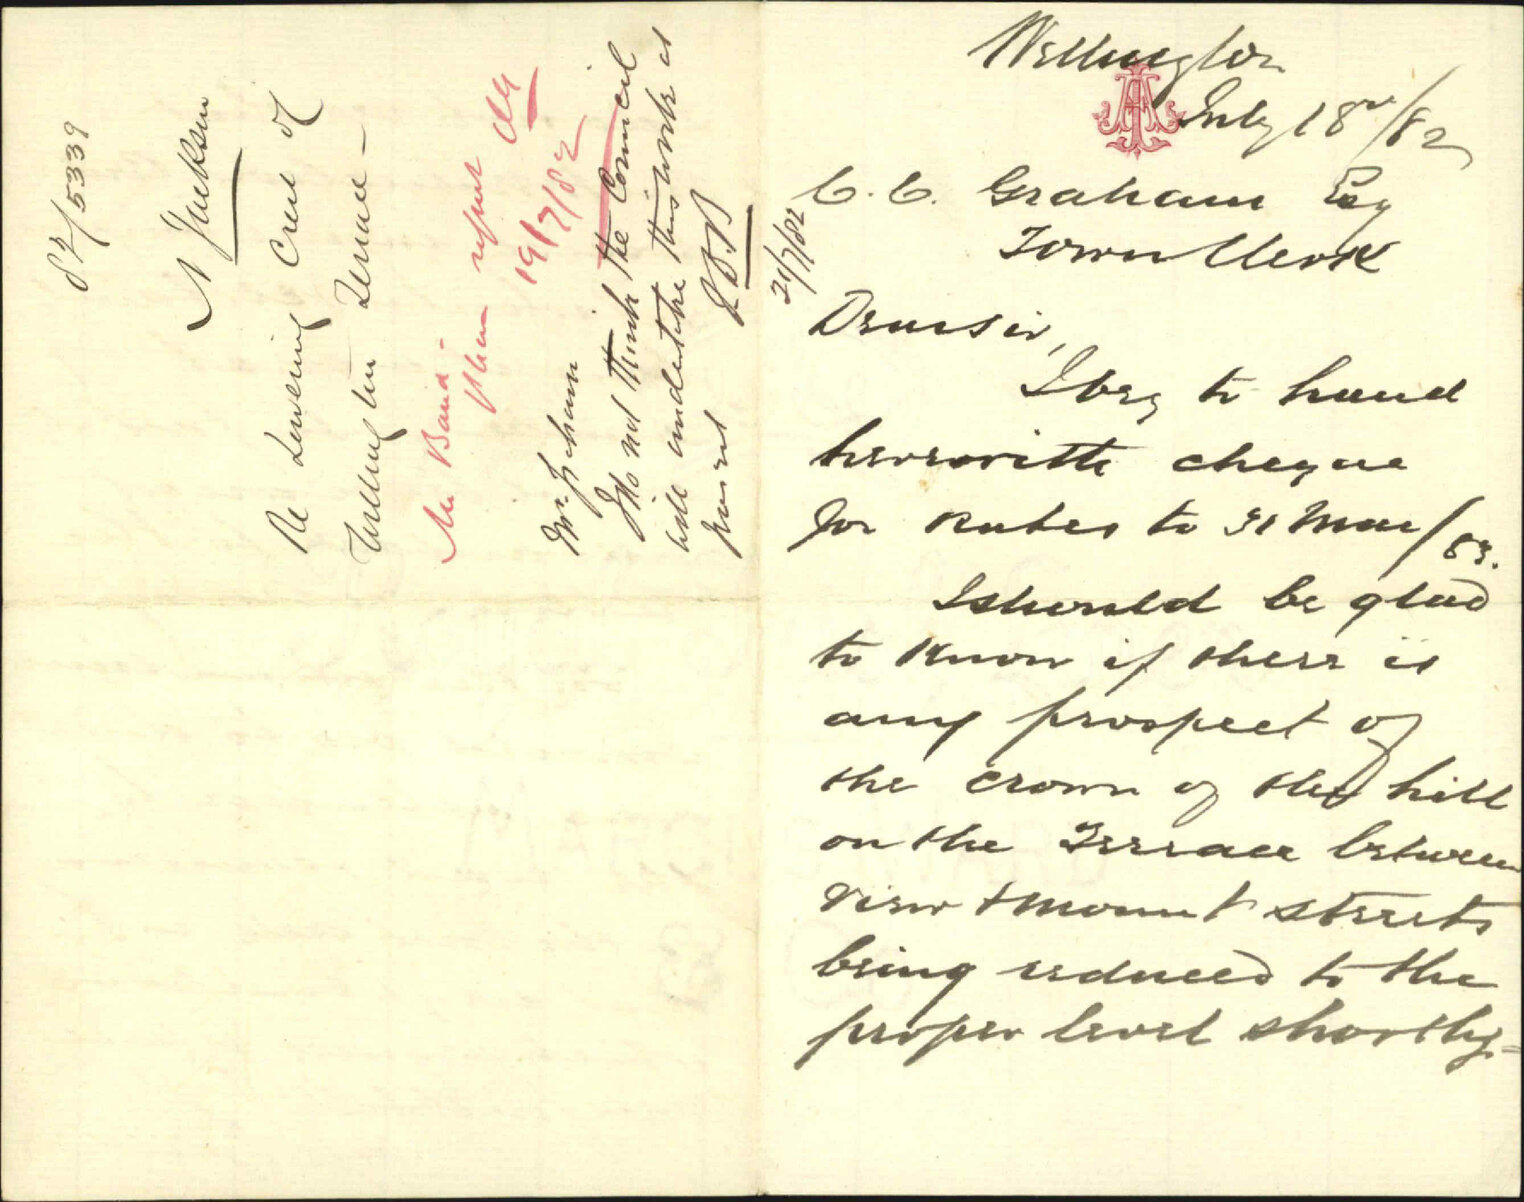 Wellington
July 18th/82
C. C. Graham Esq
Town Clerk
Dear Sir,
I beg to hand
herewith cheque
for Rates to 31 Mar/83.
I should be glad
to know if there is
any prospect of
the crown of the hill
on the Terrace between
View & Mount Streets
being reduced to the
proper level shortly =
82/5339
Jackson
Re Lowering Crest of
Wellington Terrace —
Mr Baird -
Please report
19/7/82
Mr. Graham
I do not think the Council
will undertake this work at
present
JDB
21/7/82